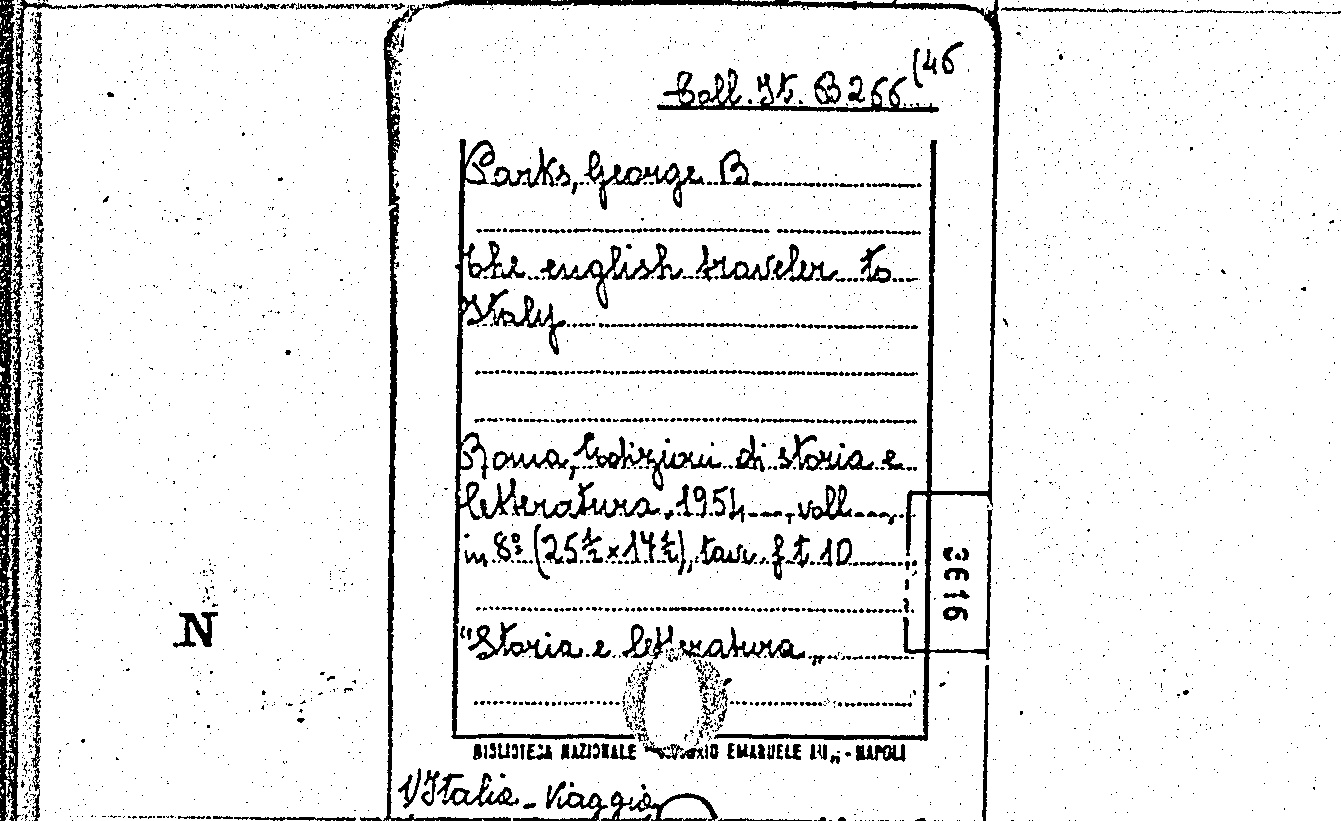 Coll. It. B 266 (46
Parks, George B.
the english traveler to
Italy
Roma, Edizioni di storia e
letteratura, 1954 ---, voll. ---,
in 8º (25 ½ x 17 ½), tav. f. t. 10
3616
N
"Storia e letteratura„
BIBLIOTECA NAZIONALE EMANUELE III„ - NAPOLI
1) Italia - Viaggio